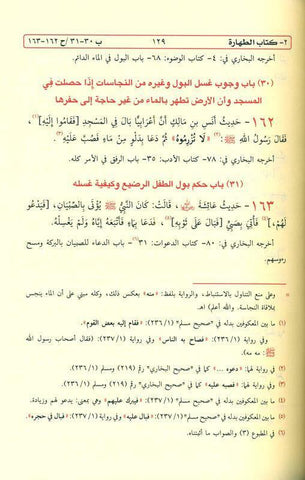 ٢- كتاب الطهارة ١٢٩ ب ٣٠-٣١ /ح ١٦٢-١٦٣
أخرجه البخاري في: ٤- كتاب الوضوء: ٦٨- باب البول في الماء الدائم.
(٣٠) باب وجوب غسل البول وغيره من النجاسات إذا حصلت في
المسجد وأن الأرض تطهر بالماء من غير حاجة إلى حفرها
١٦٢- حَدِيثُ أَنَسِ بْنِ مَالِكٍ أَنَّ أَعْرَابِيًّا بَالَ فِي الْمَسْجِدِ [فَقَامُوا إِلَيْهِ](١)،
فَقَالَ رَسُولُ اللهِ ﷺ: «لَا تُزْرِمُوهُ» ثُمَّ دَعَا بِدَلْوٍ مِنْ مَاءٍ فَصُبَّ عَلَيْهِ(٢).
أخرجه البخاري في: ٧٨- كتاب الأدب: ٣٥- باب الرفق في الأمر كله.
(٣١) باب حكم بول الطفل الرضيع وكيفية غسله
١٦٣- حَدِيثُ عَائِشَةَ، قَالَتْ: كَانَ النَّبِيُّ ﷺ يُؤْتَى بِالصِّبْيَانِ، [فَيَدْعُو
لَهُمْ](٤)، فَأُتِيَ بِصَبِيٍّ [فَبَالَ عَلَى ثَوْبِهِ](٥)، فَدَعَا بِمَاءٍ، فَأَتْبَعَهُ إِيَّاهُ وَلَمْ يَغْسِلْهُ.
أخرجه البخاري في: ٨٠- كتاب الدعوات: ٣١- باب الدعاء للصبيان بالبركة ومسح
رءوسهم.
وعلى منع التناول بالاستنباط، والرواية بلفظ: «منه» بعكس ذلك، وكله مبني على أن الماء ينجس
بملاقاة النجاسة. والله أعلم) اهـ.
(١) ما بين المعكوفين بدله في «صحيح مسلم» (١/ ٢٣٦): «فقام إليه بعض القوم».
وفي رواية (١/ ٢٣٦): «فصاح به الناس» وفي رواية (١/ ٢٣٧): (فقال أصحاب رسول الله
ﷺ: مه مه).
(٢) في رواية لهما: «دعوه ...» كما في «صحيح البخاري» رقم (٢١٩) ومسلم (١/ ٢٣٦).
(٣) وفي رواية لهما: «فصبه عليه» كما في «صحيح البخاري» رقم (٢١٩) ومسلم (١/ ٢٣٦).
(٤) ما بين المعكوفين بدله في «صحيح مسلم» (١/ ٢٣٧): «فيبرك عليهم» وهي بمعنى: يدعو لهم وزيادة.
(٥) ما بين المعكوفين بدله في «صحيح مسلم» (١/ ٢٣٧): «فبال عليه» وفي رواية: «فبال في حجره».
(٦) في المطبوع (٣) والصواب ما أثبتناه.